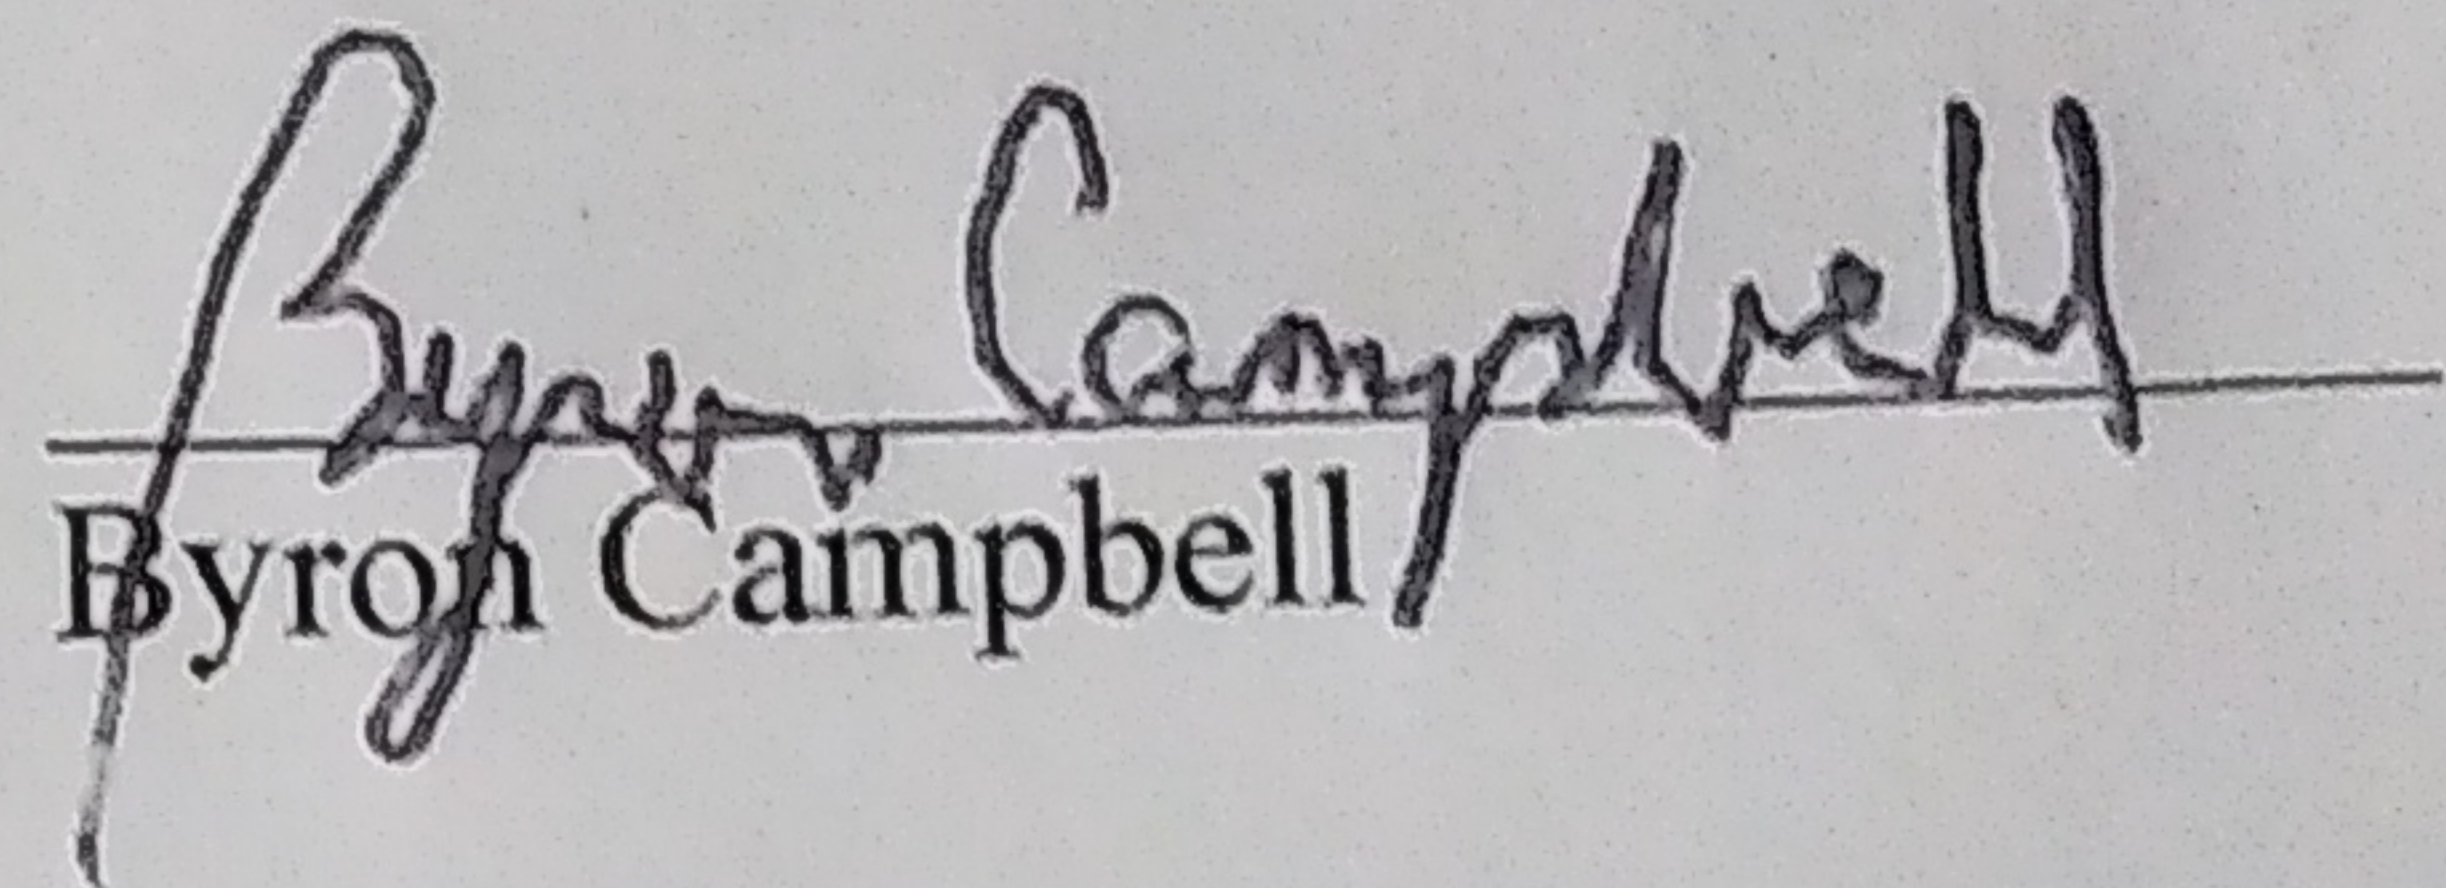 Byron Campbell
Byron Campbell